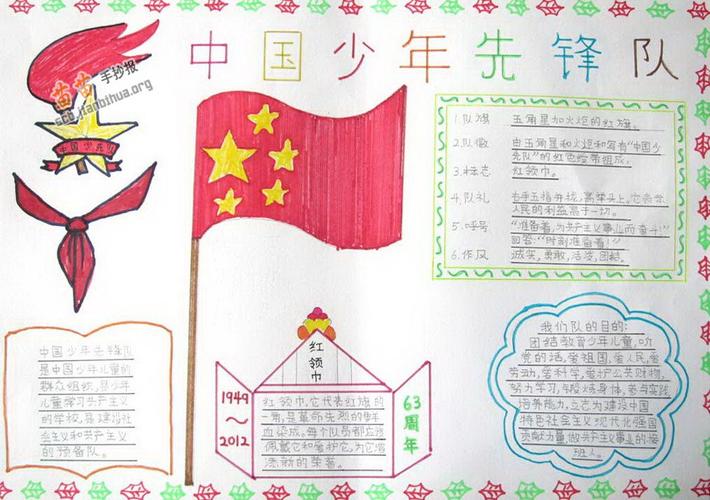 中国少年先锋队
苗苗手抄报
scb.jianbihua.org
中国少先队
1.队旗 五角星加火炬的红旗。
2.队徽 由五角星和火炬和写有“中国少
先队”的红色绶带组成。
3.标志 红领巾。
4.队礼 右手五指并拢,高举头上。它表示
人民的利益高于一切。
5.呼号 “准备着,为共产主义事业而奋斗!”
的答:“时刻准备着!”
6.作风 诚实,勇敢,活泼,团结。
中国少年先锋队
是中国少年儿童的
群众组织,是少年
儿童学习共产主义
的学校,是建设社
会主义和共产主义
的预备队。
红领巾
1949
~
2012
红领巾,它代表红旗的
一角,是革命先烈的鲜
血染成。每个队员都应该
佩戴它和爱护它,为它增
添新的荣誉。
63周年
我们队的目的:
团结教育少年儿童,听
党的话,爱祖国,爱人民,爱
劳动,爱科学,爱护公共财物,
努力学习,锻炼身体,参与实践,
培养能力,立志为建设中国
特色社会主义现代化强国
贡献力量,做共产主义事业的接
班人。